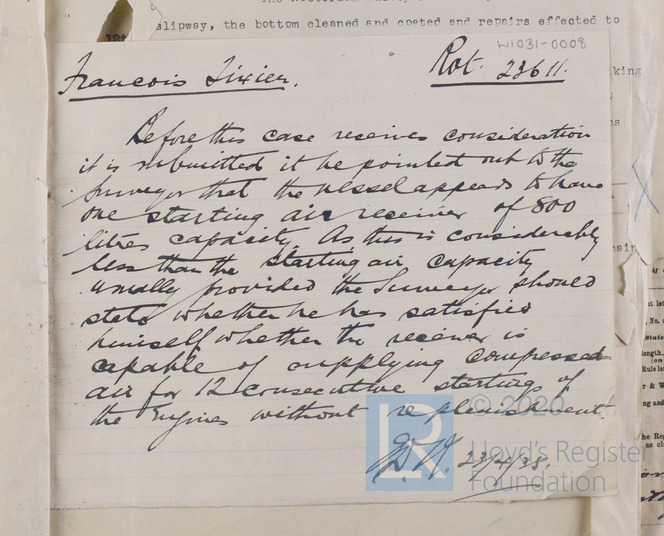 slipway, the bottom cleaned and coated and repairs effected to
W1031-0008
Francois Tixier.
Rot. 23611.
king
Before this case receives consideration
it is submitted it be pointed out to the
Surveyor that the vessel appears to have
one starting air receiver of 800
litres capacity. As this is considerably
less than the starting air capacity
usually provided the Surveyor should
state whether he has satisfied
himself whether the receiver is
capable of supplying compressed
air for 12 consecutive startings of
the Engines without replenishment.
23/4/38.
© 2020
LR
Lloyd's Register
Foundation